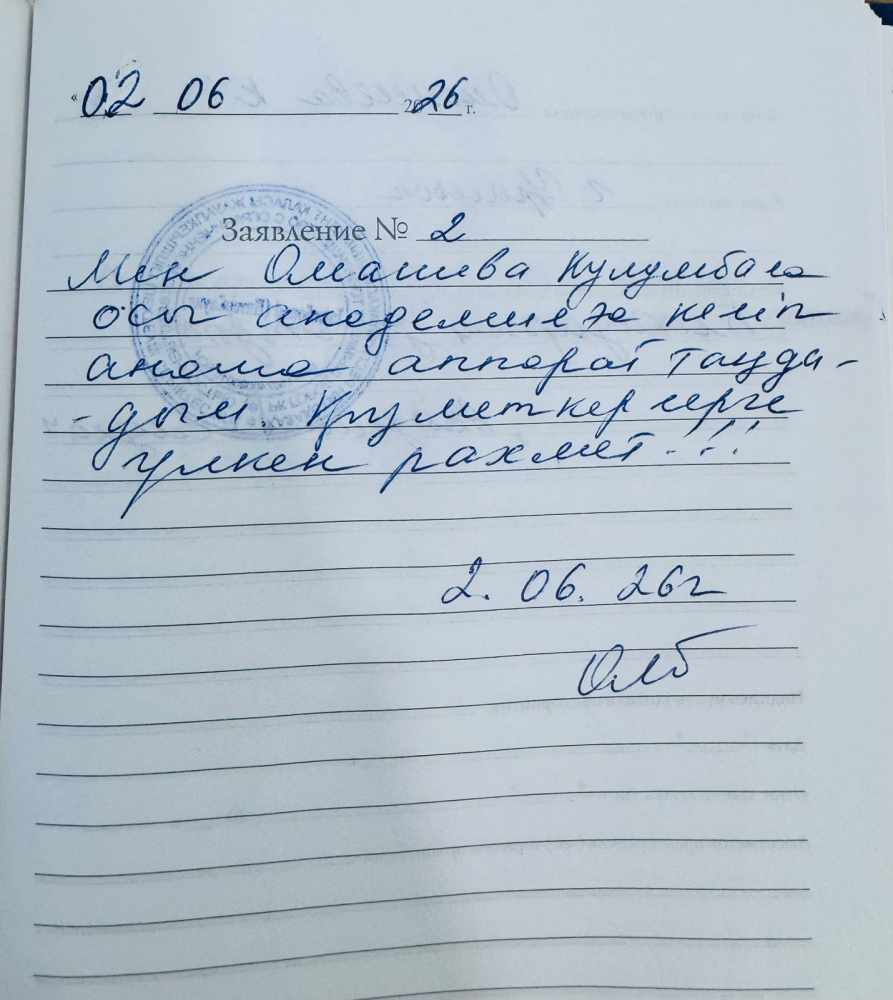 «02 06 2026 г.
Заявление № 2
Мен Омашева Кулумбала
осы академияға келіп
анама аппорат таңда-
-дым. Қызметкерлерге
үлкен рахмет!!!
2. 06. 26г